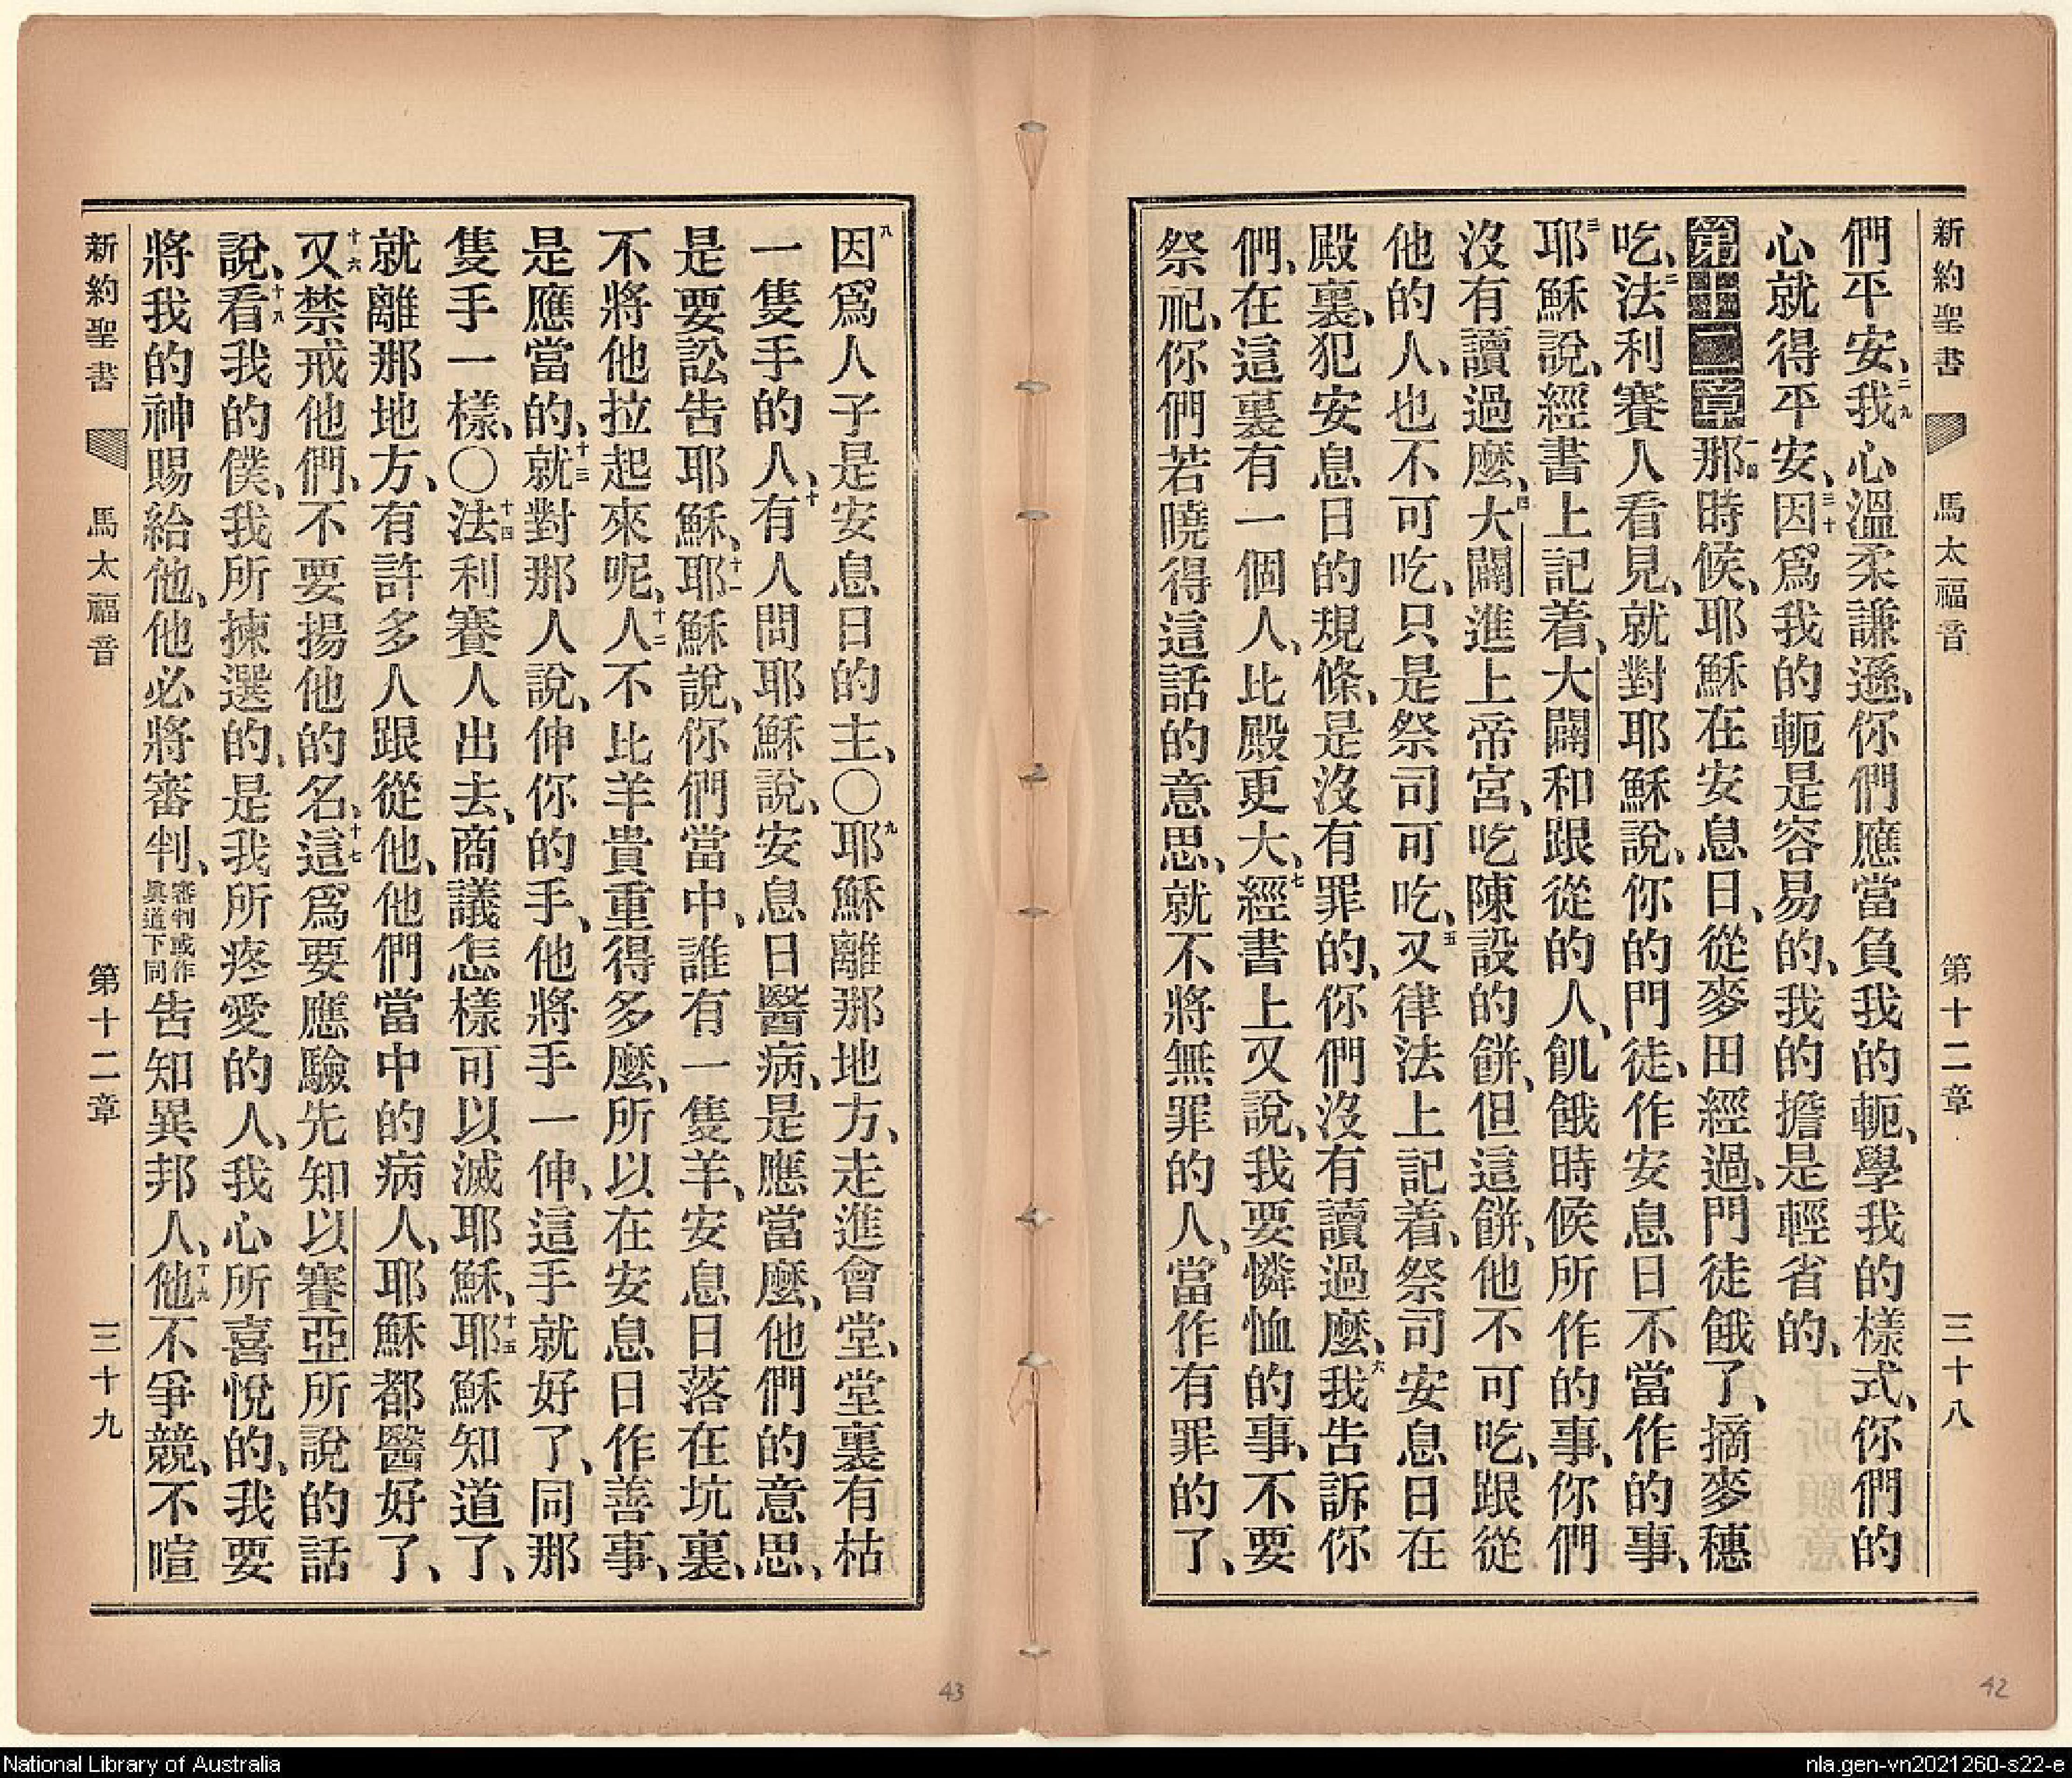 新約聖書 馬太福音 第十二章 三十八
們平安、二九我心溫柔謙遜、你們應當負我的軛、學我的樣式、你們的
心就得平安、三十因爲我的軛是容易的、我的擔是輕省的、
第十二章一那時候、耶穌在安息日、從麥田經過、門徒餓了、摘麥穗
吃、二法利賽人看見、就對耶穌說、你的門徒、作安息日不當作的事、
三耶穌說、經書上記着、大闢和跟從的人、飢餓時候所作的事、你們
沒有讀過麼、四大闢進上帝宮、吃陳設的餅、但這餅、他不可吃、跟從
他的人、也不可吃、只是祭司可吃、五又律法上記着、祭司安息日在
殿裏、犯安息日的規條、是沒有罪的、你們沒有讀過麼、六我告訴你
們、在這裏有一個人、比殿更大、七經書上又說、我要憐恤的事、不要
祭祀、你們若曉得這話的意思、就不將無罪的人、當作有罪的了、
八因爲人子是安息日的主、〇九耶穌離那地方、走進會堂、堂裏有枯
一隻手的人、十有人問耶穌說、安息日醫病、是應當麼、他們的意思、
是要訟告耶穌、十一耶穌說、你們當中、誰有一隻羊、安息日落在坑裏、
不將他拉起來呢、十二人不比羊貴重得多麼、所以在安息日作善事、
是應當的、十三就對那人說、伸你的手、他將手一伸、這手就好了、同那
隻手一樣、〇十四法利賽人出去、商議怎樣可以滅耶穌、十五耶穌知道了、
就離那地方、有許多人跟從他、他們當中的病人、耶穌都醫好了、
十六又禁戒他們、不要揚他的名、十七這爲要應驗先知以賽亞所說的話
說、十八看我的僕、我所揀選的、是我所疼愛的人、我心所喜悅的、我要
將我的神賜給他、他必將審判、審判或作眞道下同告知異邦人、十九他不爭競、不喧
新約聖書 馬太福音 第十二章 三十九
43
42
National Library of Australia
nla.gen-vn2021260-s22-e